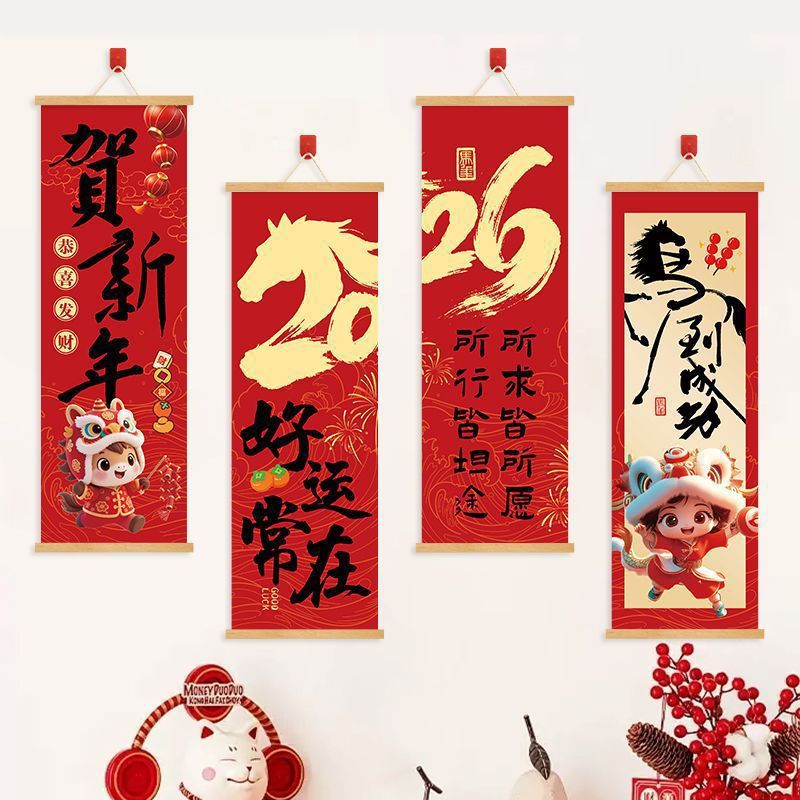 贺新年
恭喜发财
财
福
2026
好运在
常在
GOOD LUCK
馬年
所求皆所愿
所行皆坦途
馬到成功
MONEYDUODUO
KONGHAIFATCHOY